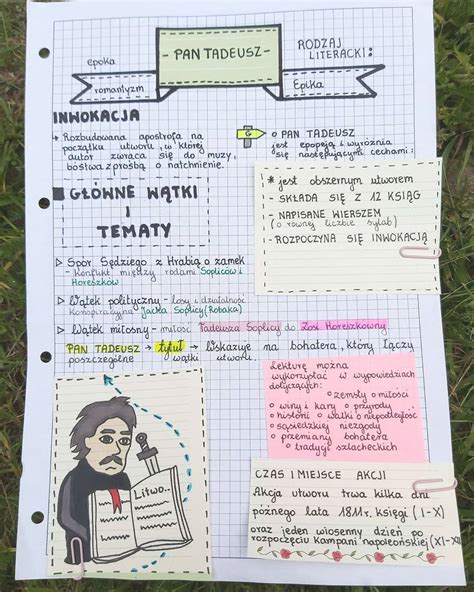 epoka
romantyzm
- PAN TADEUSZ-
RODZAJ
LITERACKI:
Epika
INWOKACJA
→ Rozbudowana apostrofa na
początku utworu, w której
autor zwraca się do muzy,
bóstwa z prośbą o natchnienie.
G
PAN TADEUSZ
jest epopeją i wyróżnia
się następującymi cechami:
* jest obszernym utworem
- SKŁADA SIĘ Z 12 KSIĄG
- NAPISANE WIERSZEM
(o równej liczbie sylab)
- ROZPOCZYNA SIĘ INWOKACJĄ
GŁÓWNE WĄTKI
I
TEMATY
▷ Spór Sędziego z Hrabią o zamek
- Konflikt między rodami Sopliców i
Horeszków
▷ Wątek polityczny - losy i działalność
Konspiracyjna Jacka Soplicy (Robaka)
▷ Wątek miłosny - miłość Tadeusza Soplicy do Zosi Horeszkówny
PAN TADEUSZ → tytuł - Wskazuje na bohatera, który łączy
poszczególne wątki utworu.
Lekturę można
wykorzystać w wypowiedziach
dotyczących:
o zemsty o miłości
o winy i kary o przyrody
o historii o walki o niepodległość
o sąsiedzkiej niezgody
o przemiany bohatera
o tradycji szlacheckich
Litwo..
CZAS I MIEJSCE AKCJI
Akcja utworu trwa kilka dni
późnego lata 1811r. księgi (I-X)
oraz jeden wiosenny dzień po
rozpoczęciu kampanii napoleońskiej (XI-XII